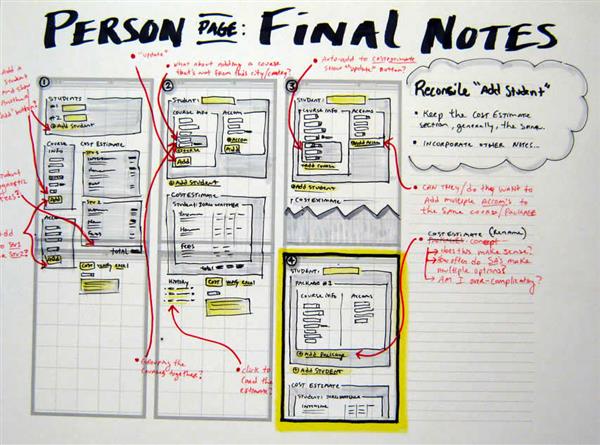 PERSON PAGE: FINAL NOTES
"update"
What about adding a course
that's not from this city/country?
Auto-add to cost estimate
show "update" button?
Add a
student
and show
another
"add" button?
1
STUDENTS
#1
#2
Add Student
Course
Info
Cost Estimate
Stu 1
Stu 2
Add
Accom
Add
total
Cost
verify email
2
Student:
Course Info
Accom
Accom
Add
Course
Add
Add Student
Cost Estimate
Student:
Fees
total
History
Cost
verify email
Grouping the
courses together?
click to
load the
estimate?
3
Student:
Course Info
Accoms
Add Accom
Add Course
Add Student
Cost Estimate
4
Student:
Package #1
Course Info
Accoms
Add Package
Add Student
Cost Estimate
Reconsile "Add Student"
Keep the Cost Estimate
section, generally, the same.
Incorporate other notes...
CAN THEY/do they WANT to
Add multiple Accom's to
the same course/package
COST ESTIMATE (Rename)
concept
does this make sense?
How often do SA's make
multiple options?
Am I over-complicating?